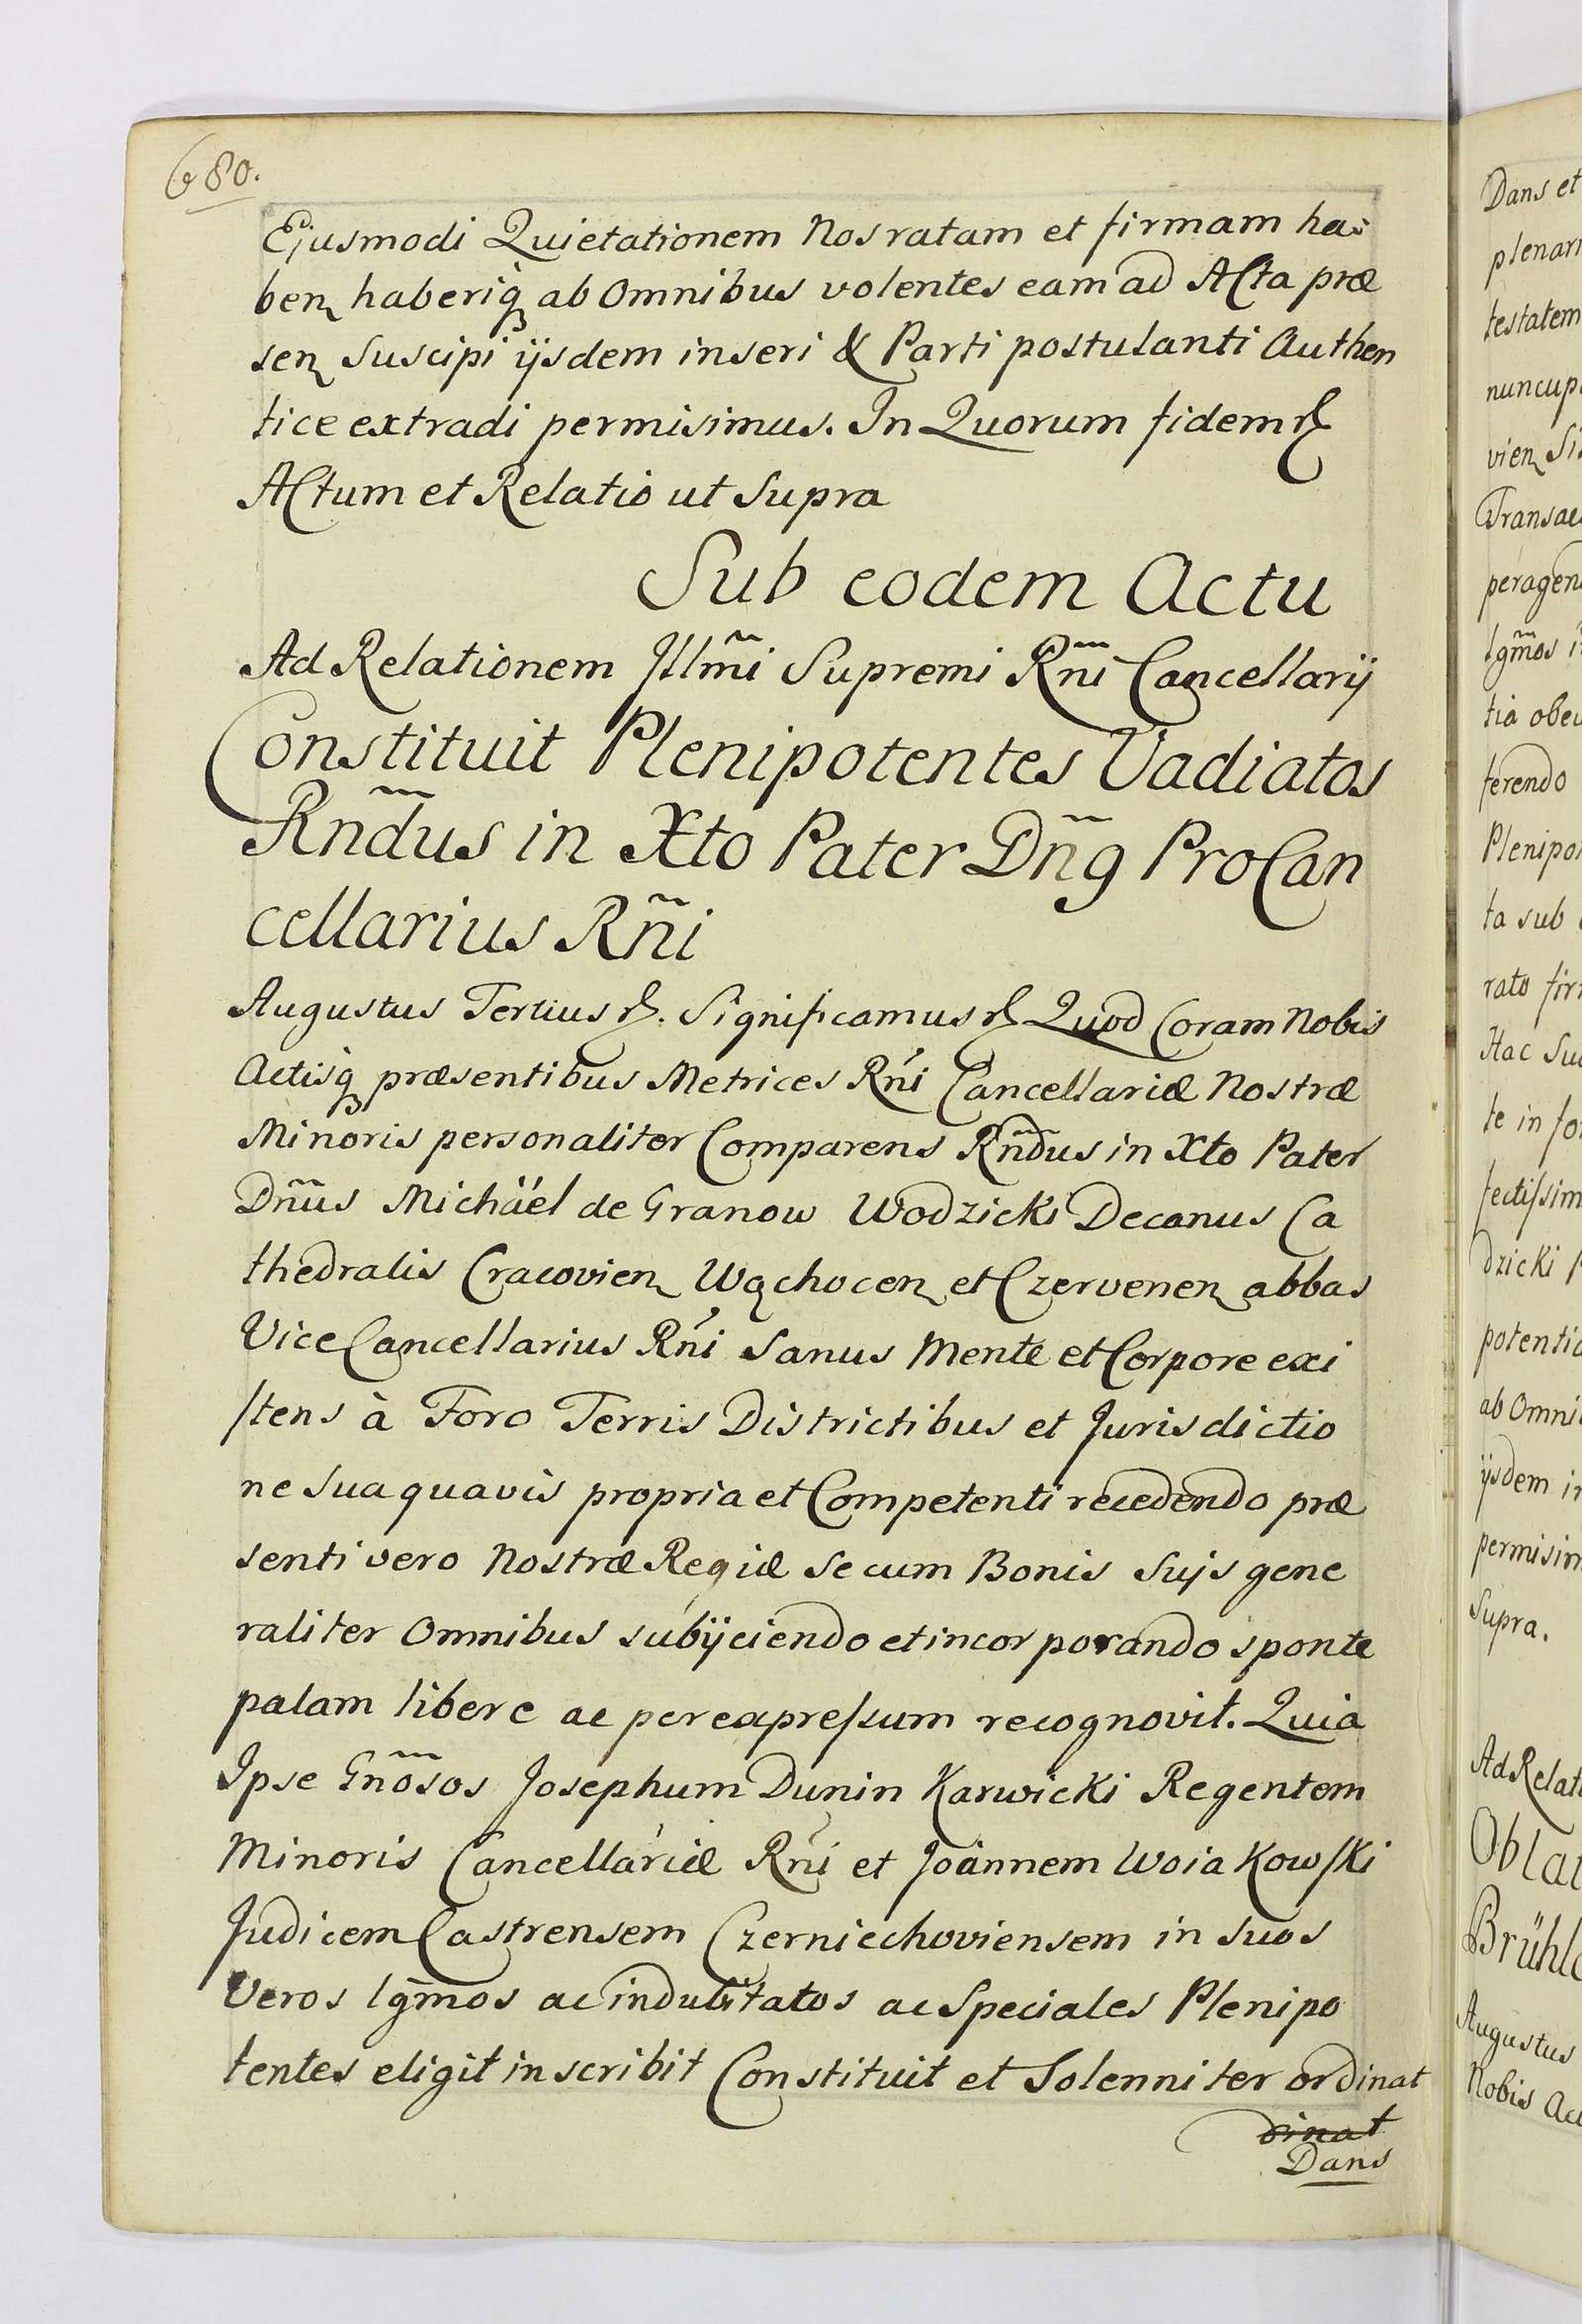 680.
Ejusmodi Quietationem Nos ratam et firmam ha
ben haberiq ab Omnibus volentes eam ad Acta præ
sen Suscipi ijsdem inseri & Parti postulanti Authen
tice extradi permisimus. In Quorum fidem etc
Actum et Relatio ut Supra
Sub eodem Actu
Ad Relationem Illm̃i Supremi Rñi Cancellarij
Constituit Plenipotentes Vadiatos
Rñdus in Xto Pater Dñg ProCan
cellarius Rñi
Augustus Tertius etc. Significamus etc Quod Coram Nobis
Actisq præsentibus Metrices Rńi Cancellariæ Nostræ
Minoris personaliter Comparens Rñdus in Xto Pater
Dñus Michäel de Granow Wodzicki Decanus Ca
thedralis Cracovien Wąchocen et Czervenen abbas
Vice Cancellarius Rńi Sanus Mente et Corpore exi
stens à Foro Terris Districtibus et Jurisdictio
ne Sua quavis propria et Competenti recedendo præ
senti vero Nostræ Regiæ Se cum Bonis Suis gene
raliter Omnibus subijciendo et incorporando sponte
palam libere ac per expressum recognovit. Quia
Ipse Gñosos Josephum Dunin Karwicki Regentem
Minoris Cancellariæ Rńi et Joannem Woiakowski
Judicem Castrensem Czerniechoviensem in Suos
Veros lgm̃os ac indubitatos ac Speciales Plenipo
tentes eligit inscribit Constituit et Solenniter ordinat
dinat
Dans
Dans et
plenari
testatem
nuncup
vien
Transac
peragen
lgm̃os
tia obeu
ferendo
Plenipo
ta sub
rato fir
Hac Su
te in fo
fectissim
dzicki
potentia
ab Omni
ijsdem in
permisim
Supra.
Ad Relati
Oblat
Brühl
Augustus
Nobis Act